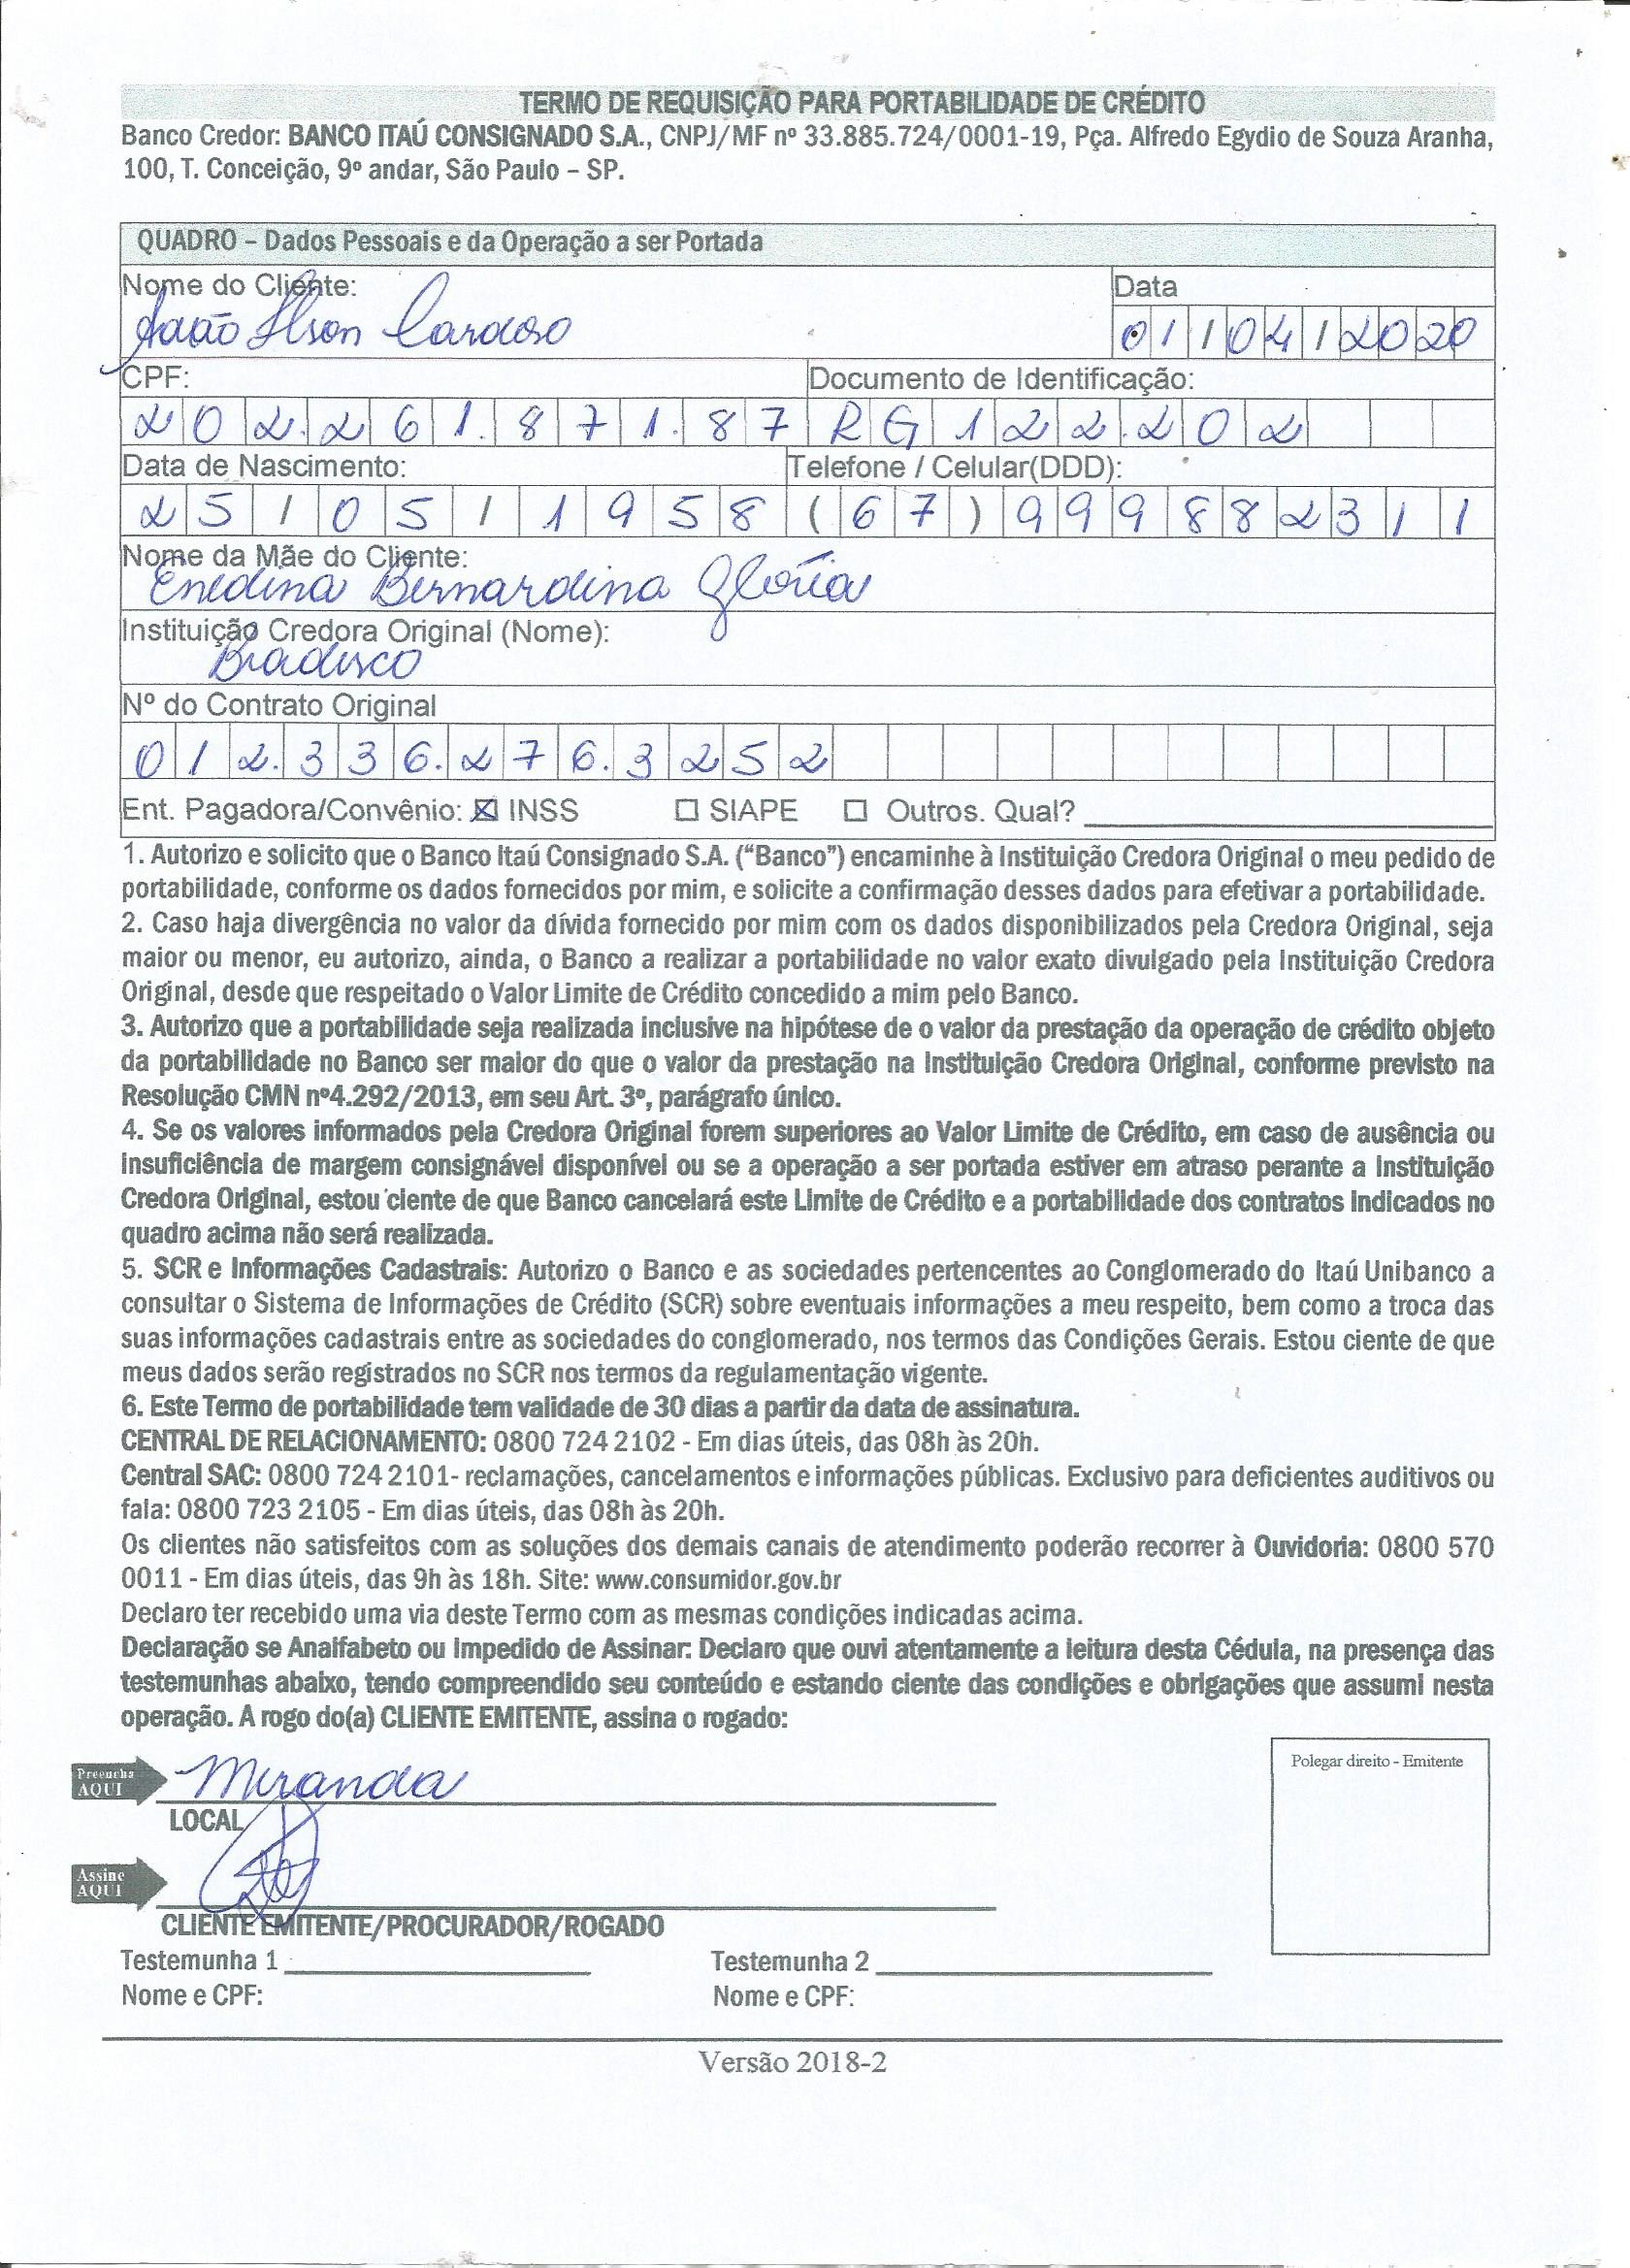 TERMO DE REQUISIÇÃO PARA PORTABILIDADE DE CRÉDITO
Banco Credor: BANCO ITAÚ CONSIGNADO S.A., CNPJ/MF nº 33.885.724/0001-19, Pça. Alfredo Egydio de Souza Aranha,
100, T. Conceição, 9º andar, São Paulo – SP.
QUADRO – Dados Pessoais e da Operação a ser Portada
Nome do Cliente: Data
Adão Ilson Cardoso 01/04/2020
CPF: Documento de Identificação:
202.261.871.87 RG 122.202
Data de Nascimento: Telefone / Celular(DDD):
25/05/1958 (67)999882311
Nome da Mãe do Cliente:
Enedina Bernardina Glória
Instituição Credora Original (Nome):
Bradesco
Nº do Contrato Original
012.336.276.3252
Ent. Pagadora/Convênio: ☒ INSS ☐ SIAPE ☐ Outros. Qual?
1. Autorizo e solicito que o Banco Itaú Consignado S.A. (“Banco”) encaminhe à Instituição Credora Original o meu pedido de
portabilidade, conforme os dados fornecidos por mim, e solicite a confirmação desses dados para efetivar a portabilidade.
2. Caso haja divergência no valor da dívida fornecido por mim com os dados disponibilizados pela Credora Original, seja
maior ou menor, eu autorizo, ainda, o Banco a realizar a portabilidade no valor exato divulgado pela Instituição Credora
Original, desde que respeitado o Valor Limite de Crédito concedido a mim pelo Banco.
3. Autorizo que a portabilidade seja realizada inclusive na hipótese de o valor da prestação da operação de crédito objeto
da portabilidade no Banco ser maior do que o valor da prestação na Instituição Credora Original, conforme previsto na
Resolução CMN nº4.292/2013, em seu Art. 3º, parágrafo único.
4. Se os valores informados pela Credora Original forem superiores ao Valor Limite de Crédito, em caso de ausência ou
insuficiência de margem consignável disponível ou se a operação a ser portada estiver em atraso perante a Instituição
Credora Original, estou ciente de que Banco cancelará este Limite de Crédito e a portabilidade dos contratos indicados no
quadro acima não será realizada.
5. SCR e Informações Cadastrais: Autorizo o Banco e as sociedades pertencentes ao Conglomerado do Itaú Unibanco a
consultar o Sistema de Informações de Crédito (SCR) sobre eventuais informações a meu respeito, bem como a troca das
suas informações cadastrais entre as sociedades do conglomerado, nos termos das Condições Gerais. Estou ciente de que
meus dados serão registrados no SCR nos termos da regulamentação vigente.
6. Este Termo de portabilidade tem validade de 30 dias a partir da data de assinatura.
CENTRAL DE RELACIONAMENTO: 0800 724 2102 - Em dias úteis, das 08h às 20h.
Central SAC: 0800 724 2101- reclamações, cancelamentos e informações públicas. Exclusivo para deficientes auditivos ou
fala: 0800 723 2105 - Em dias úteis, das 08h às 20h.
Os clientes não satisfeitos com as soluções dos demais canais de atendimento poderão recorrer à Ouvidoria: 0800 570
0011 - Em dias úteis, das 9h às 18h. Site: www.consumidor.gov.br
Declaro ter recebido uma via deste Termo com as mesmas condições indicadas acima.
Declaração se Analfabeto ou Impedido de Assinar: Declaro que ouvi atentamente a leitura desta Cédula, na presença das
testemunhas abaixo, tendo compreendido seu conteúdo e estando ciente das condições e obrigações que assumi nesta
operação. A rogo do(a) CLIENTE EMITENTE, assina o rogado:
Polegar direito - Emitente
Preencha
AQUI
Miranda
LOCAL
Assine
AQUI
CLIENTE EMITENTE/PROCURADOR/ROGADO
Testemunha 1 Testemunha 2
Nome e CPF: Nome e CPF:
Versão 2018-2